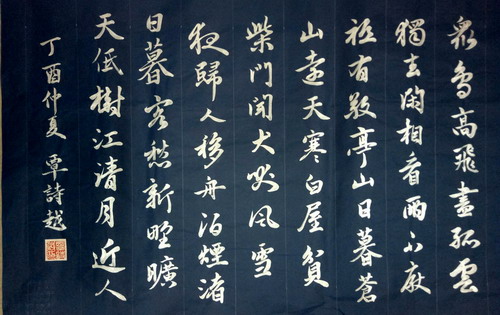 衆鳥高飛盡孤雲
獨去閑相看兩不厭
祗有敬亭山日暮蒼
山遠天寒白屋貧
柴門聞犬吠風雪
夜歸人移舟泊煙渚
日暮客愁新野曠
天低樹江清月近人
丁酉仲夏 覃詩越